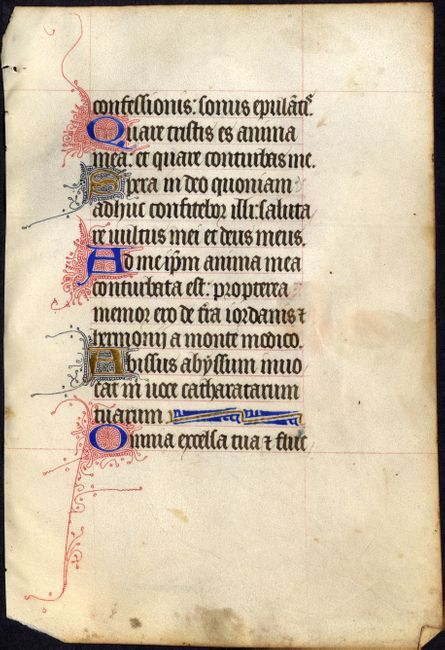 confessionis: sonus epulātꝭ.
Quare tristis es anima
mea: et quare conturbas me.
Spera in deo quoniam
adhuc confitebor illi: saluta
re uultus mei et deus meus.
Ad me ip̄m anima mea
conturbata est: propterea
memor ero de tr̄a iordanis ⁊
hermonij a monte modico.
Abissus abyssum inuo
cat in uoce catharatarum
tuarum
Omnia excelsa tua ⁊ fluc